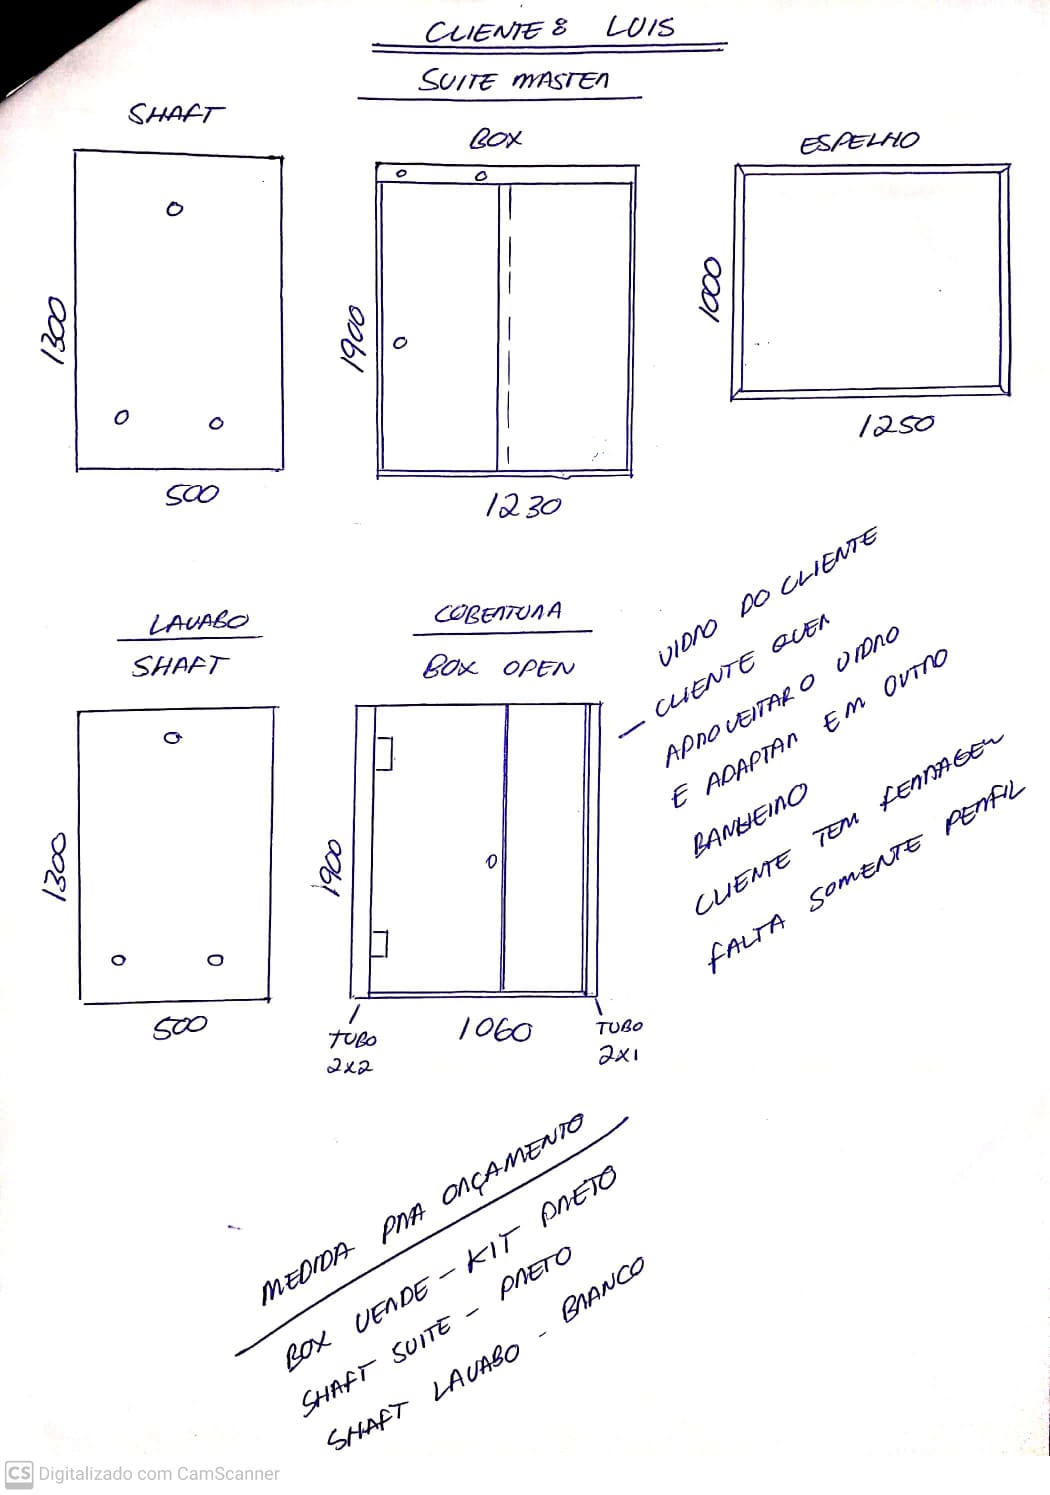 CLIENTE: LUIS
SUITE MASTER
SHAFT
BOX
ESPELHO
1300
500
1900
1230
1000
1250
LAVABO
SHAFT
1300
500
COBERTURA
BOX OPEN
1900
1060
TUBO
2x2
TUBO
2x1
VIDRO DO CLIENTE
- CLIENTE QUER
APROVEITAR O VIDRO
E ADAPTAR EM OUTRO
BANHEIRO
CLIENTE TEM FERRAGEM
FALTA SOMENTE PERFIL
MEDIDA PRA ORÇAMENTO
BOX VERDE - KIT PRETO
SHAFT SUITE - PRETO
SHAFT LAVABO - BRANCO
CS Digitalizado com CamScanner